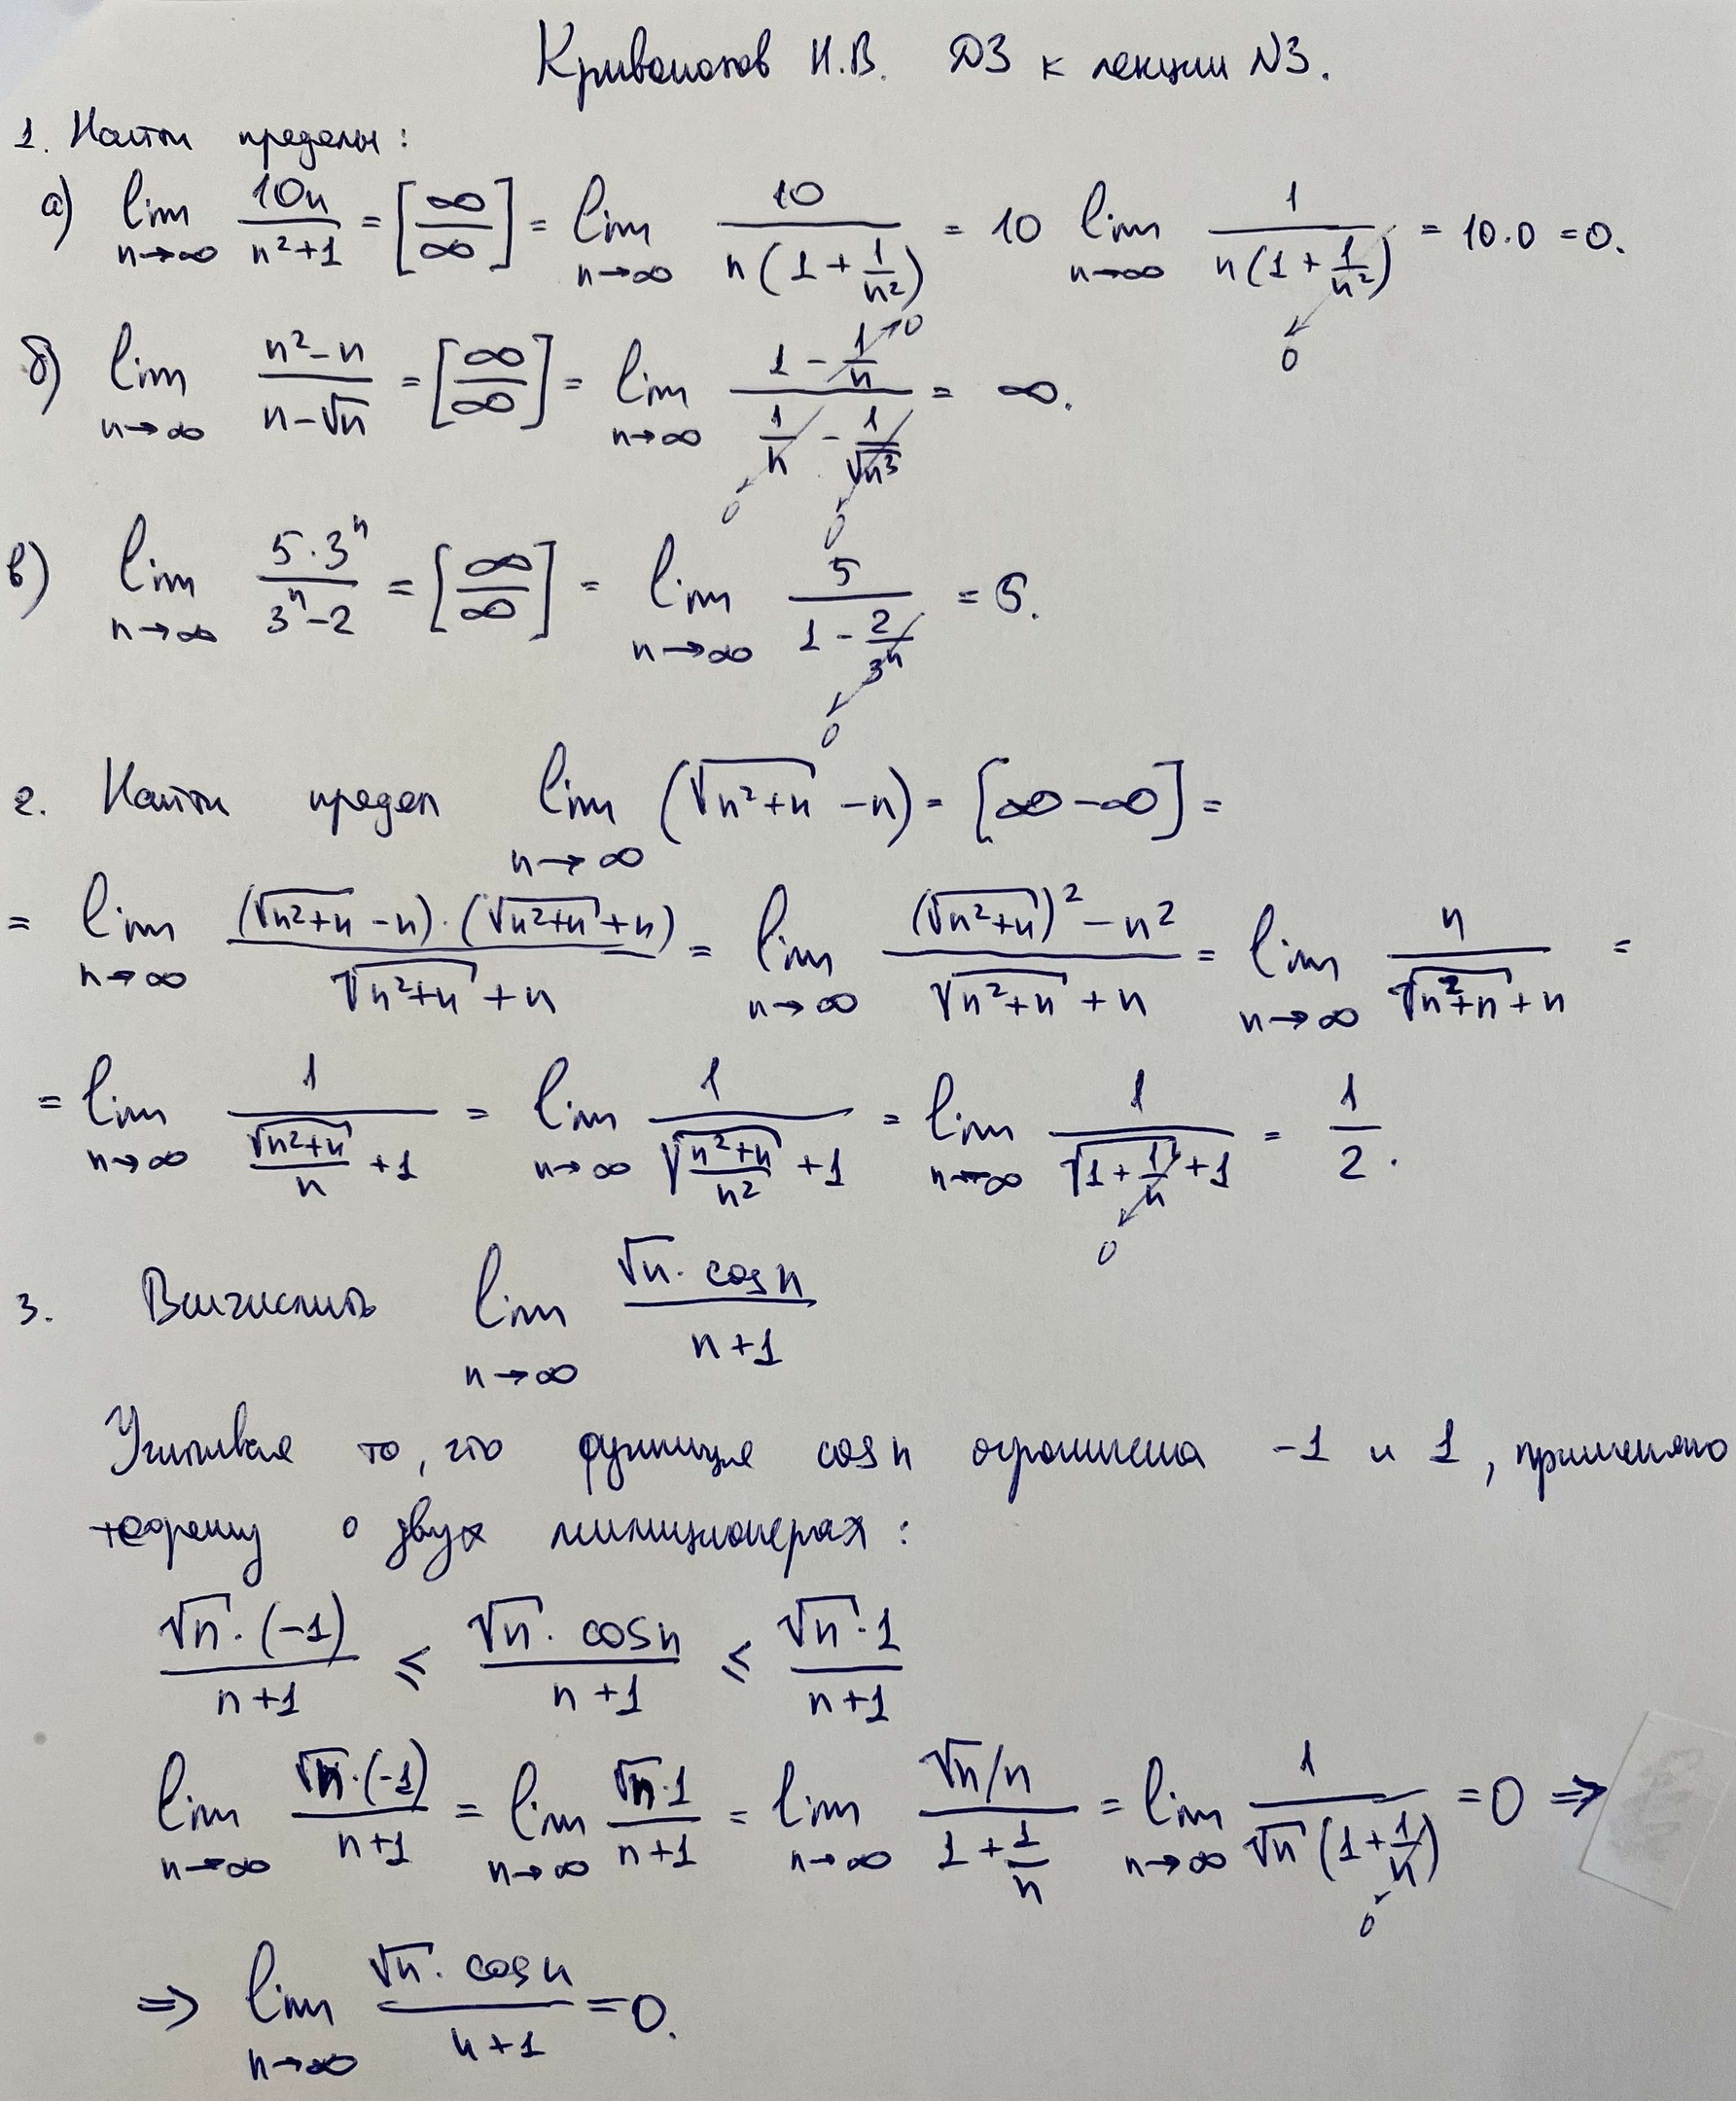 Кривоногов И.В. ДЗ к лекции №3.
1. Найти пределы:
а) lim n→∞ 10n/(n²+1) = [∞/∞] = lim n→∞ 10/(n(1+1/n²)) = 10 lim n→∞ 1/(n(1+1/n²)) = 10·0 = 0.
0
б) lim n→∞ (n²-n)/(n-√n) = [∞/∞] = lim n→∞ (1-1/n →0)/(1/n - 1/√n³) = ∞.
0 0
в) lim n→∞ 5·3ⁿ/(3ⁿ-2) = [∞/∞] = lim n→∞ 5/(1-2/3ⁿ) = 5.
0
2. Найти предел lim n→∞ (√(n²+n) - n) = [∞-∞] =
= lim n→∞ (√(n²+n) - n)·(√(n²+n) + n)/(√(n²+n) + n) = lim n→∞ ((√(n²+n))² - n²)/(√(n²+n) + n) = lim n→∞ n/(√(n²+n) + n) =
= lim n→∞ 1/(√(n²+n)/n + 1) = lim n→∞ 1/(√((n²+n)/n²) + 1) = lim n→∞ 1/(√(1+1/n) + 1) = 1/2.
0
3. Вычислить lim n→∞ √n · cos n/(n+1)
Учитывая то, что функция cos n ограничена -1 и 1, применяю
теорему о двух милиционерах:
√n·(-1)/(n+1) ≤ √n · cos n/(n+1) ≤ √n·1/(n+1)
lim n→∞ √n·(-1)/(n+1) = lim n→∞ √n·1/(n+1) = lim n→∞ (√n/n)/(1+1/n) = lim n→∞ 1/(√n(1+1/n)) = 0 ⇒
0
⇒ lim n→∞ √n · cos n/(n+1) = 0.